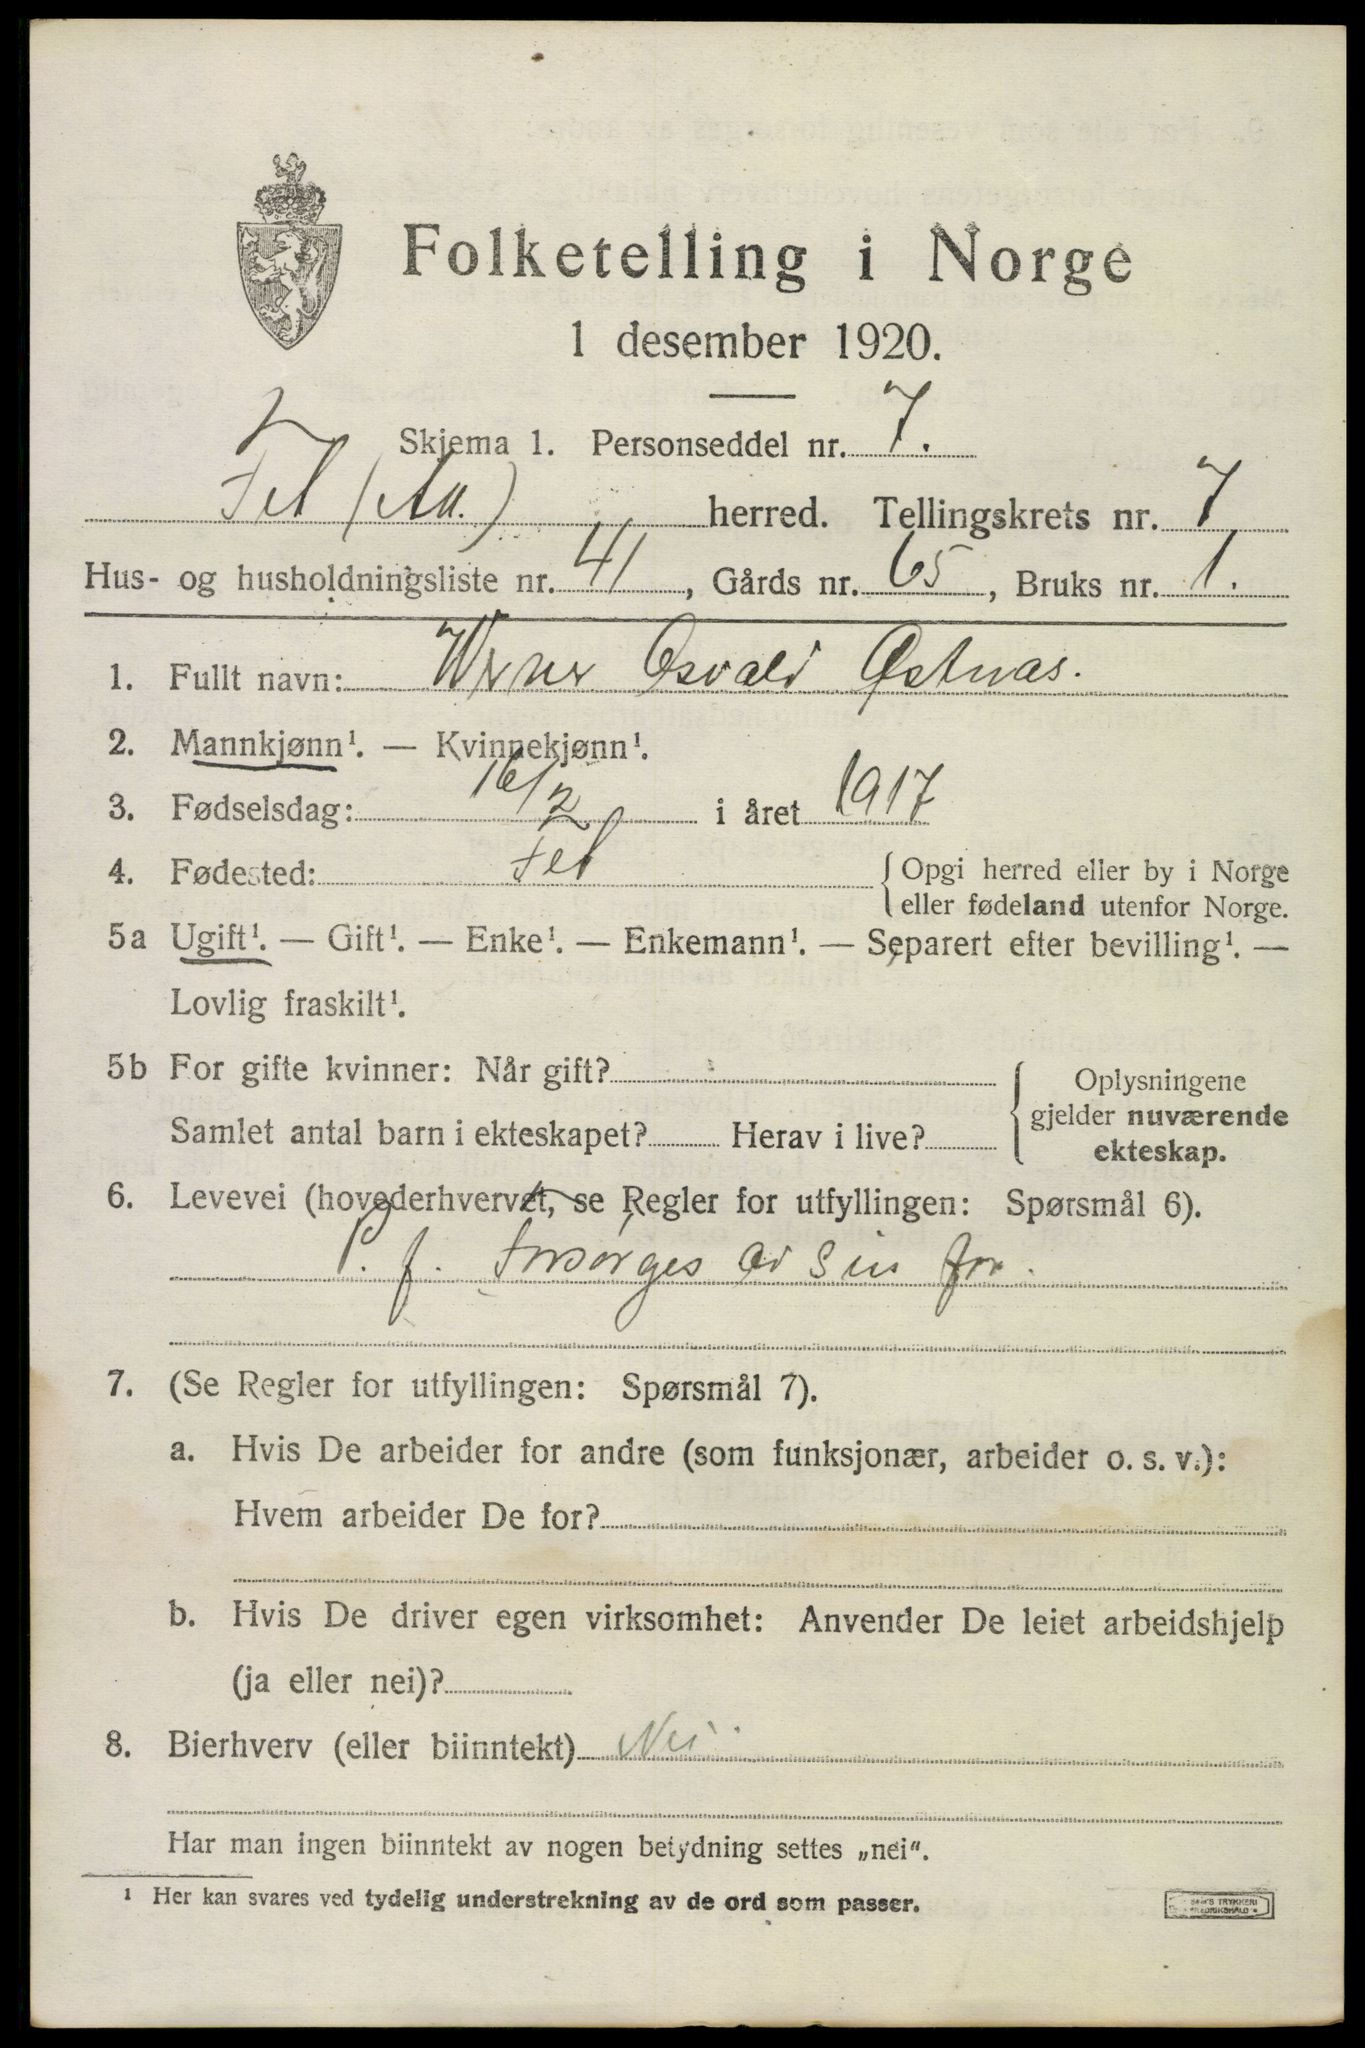 Folketelling i Norge
1 desember 1920.
Skjema 1. Personseddel nr. 7.
Fet (Ak.) herred. Tellingskrets nr. 7
Hus- og husholdningsliste nr. 41, Gårds nr. 65, Bruks nr. 1.
1. Fullt navn: Werner Osvald Østnas.
2. Mannkjønn¹. — Kvinnekjønn¹.
3. Fødselsdag: 16/2 i året 1917
4. Fødested: Fet {Opgi herred eller by i Norge
eller fødeland utenfor Norge.
5a Ugift¹. — Gift¹. — Enke¹. — Enkemann¹. — Separert efter bevilling¹. —
Lovlig fraskilt¹.
5b For gifte kvinner: Når gift? {Oplysningene
gjelder nuværende
Samlet antal barn i ekteskapet? Herav i live?
ekteskap.
6. Levevei (hovederhvervet, se Regler for utfyllingen: Spørsmål 6).
P. f. Forsørges av sin far.
7. (Se Regler for utfyllingen: Spørsmål 7).
a. Hvis De arbeider for andre (som funksjonær, arbeider o. s. v.):
Hvem arbeider De for?
b. Hvis De driver egen virksomhet: Anvender De leiet arbeidshjelp
(ja eller nei)?
8. Bierhverv (eller biinntekt) Nei
Har man ingen biinntekt av nogen betydning settes „nei“.
¹ Her kan svares ved tydelig understrekning av de ord som passer.
TRYKKERI